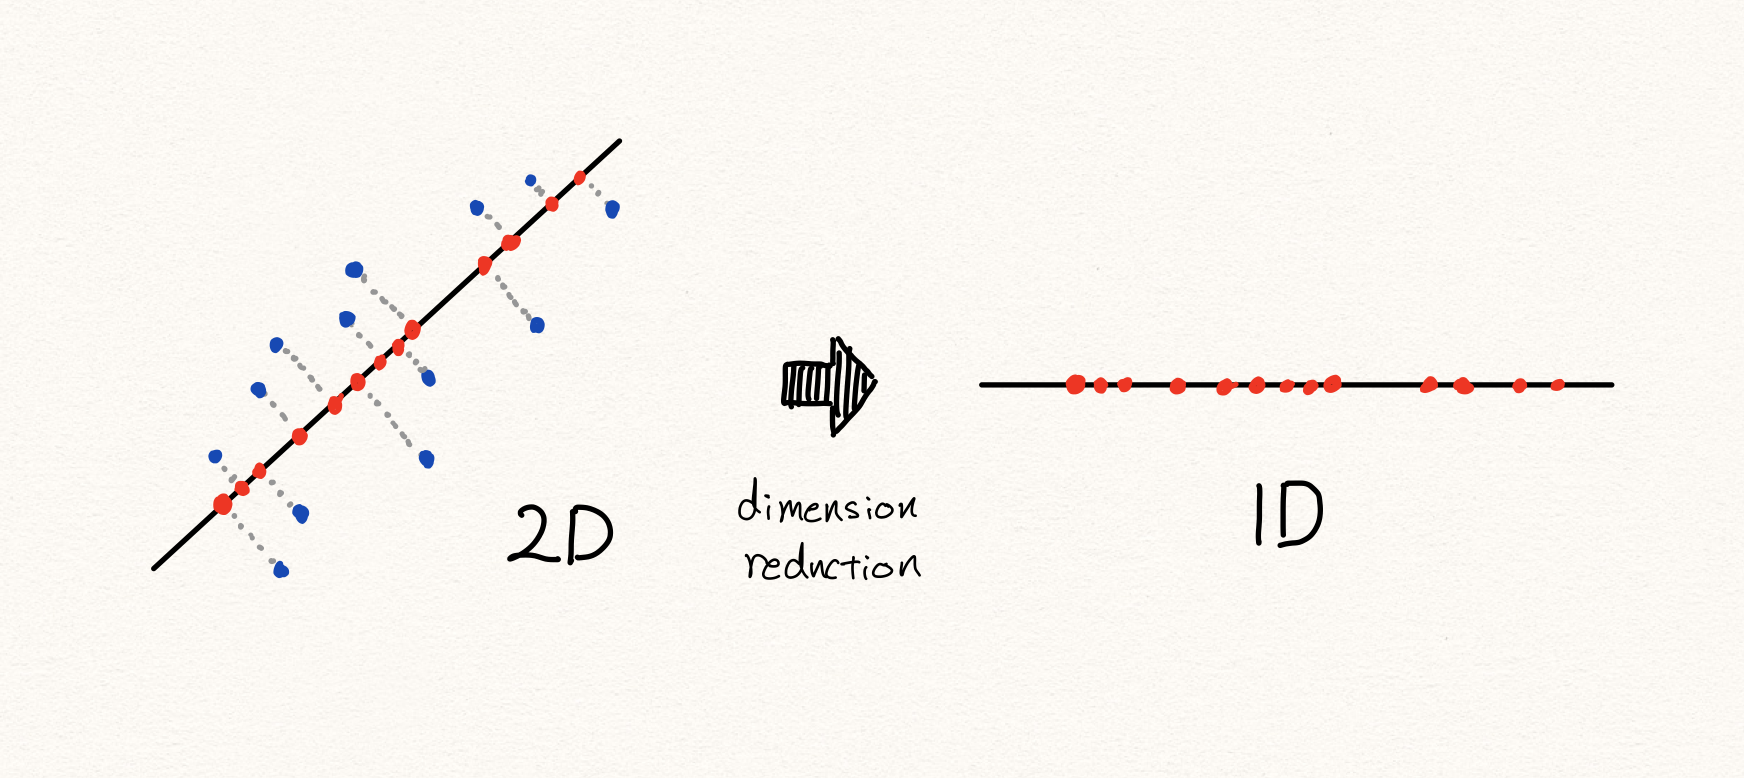 2D
dimension
reduction
1D